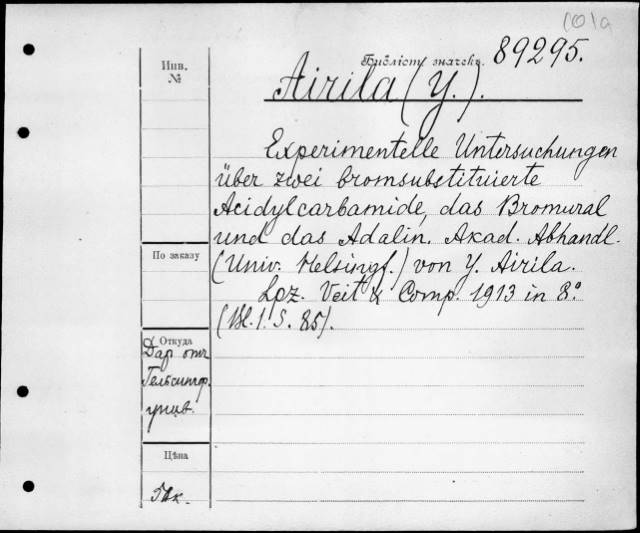 101a
Библіот. значекъ. 89295.
Инв.
№
Airila (Y.).
Experimentelle Untersuchungen
über zwei bromsubstituierte
Acidylcarbamide, das Bromural
und das Adalin. Akad. Abhandl.
По заказу
(Univ. Helsingf.) von Y. Airila.
Lpz. Veit & Comp. 1913 in 8°
S. 85).
Откуда
Даръ отъ
Гельсингф.
унив.
Цѣна